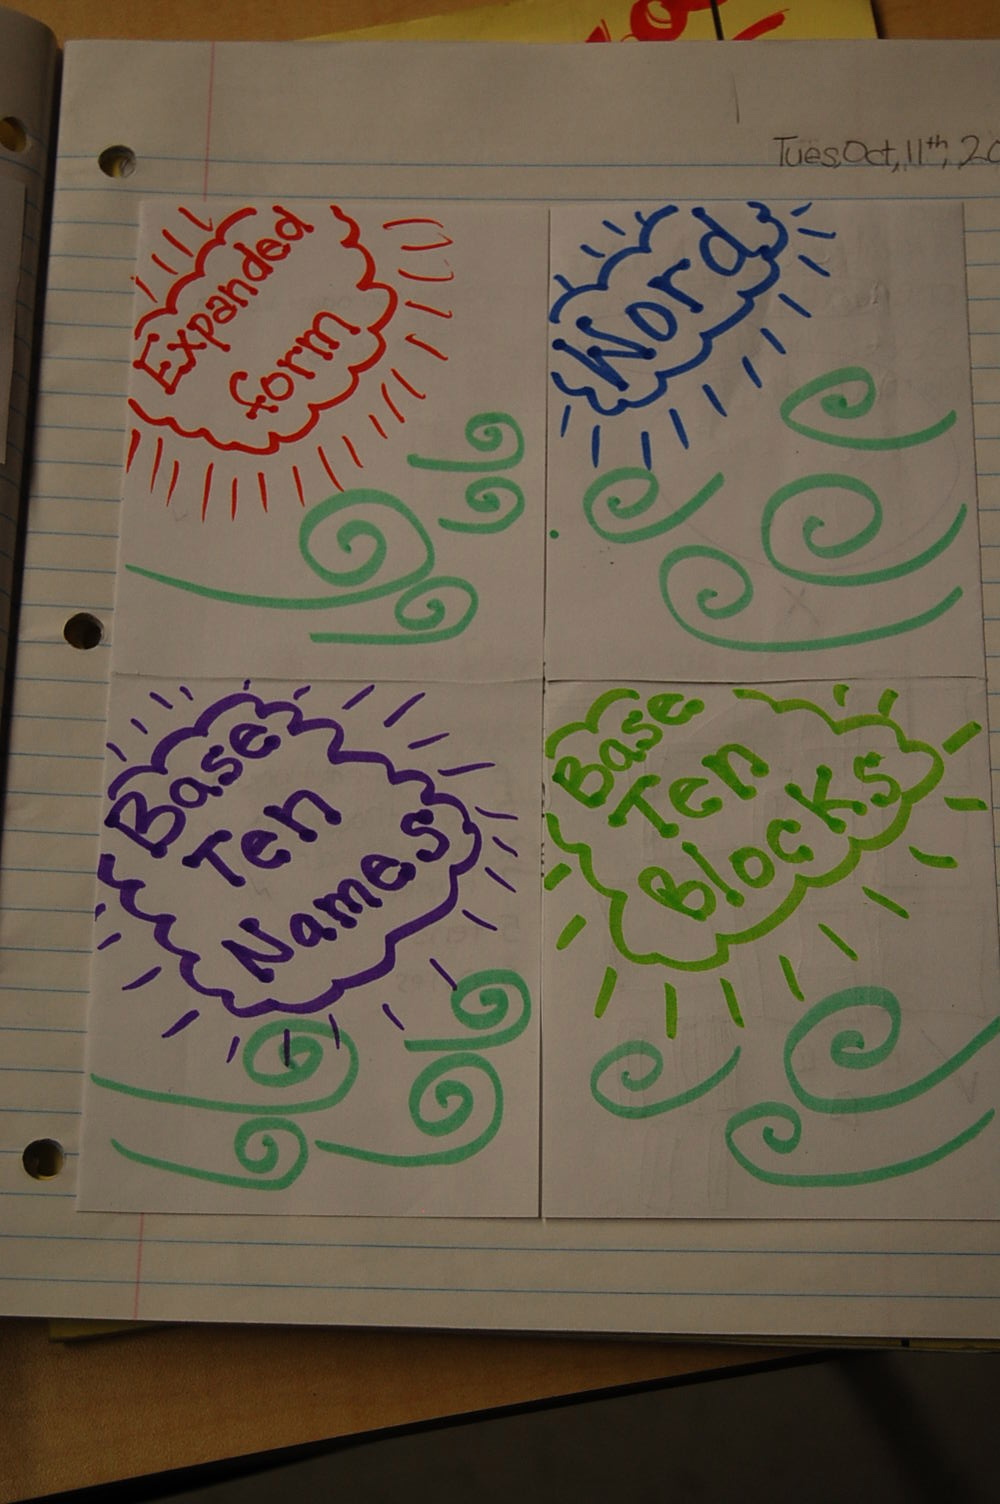 Tues, Oct, 11th, 20
Expanded
form
Word
Base
Ten
Names
Base
Ten
Blocks